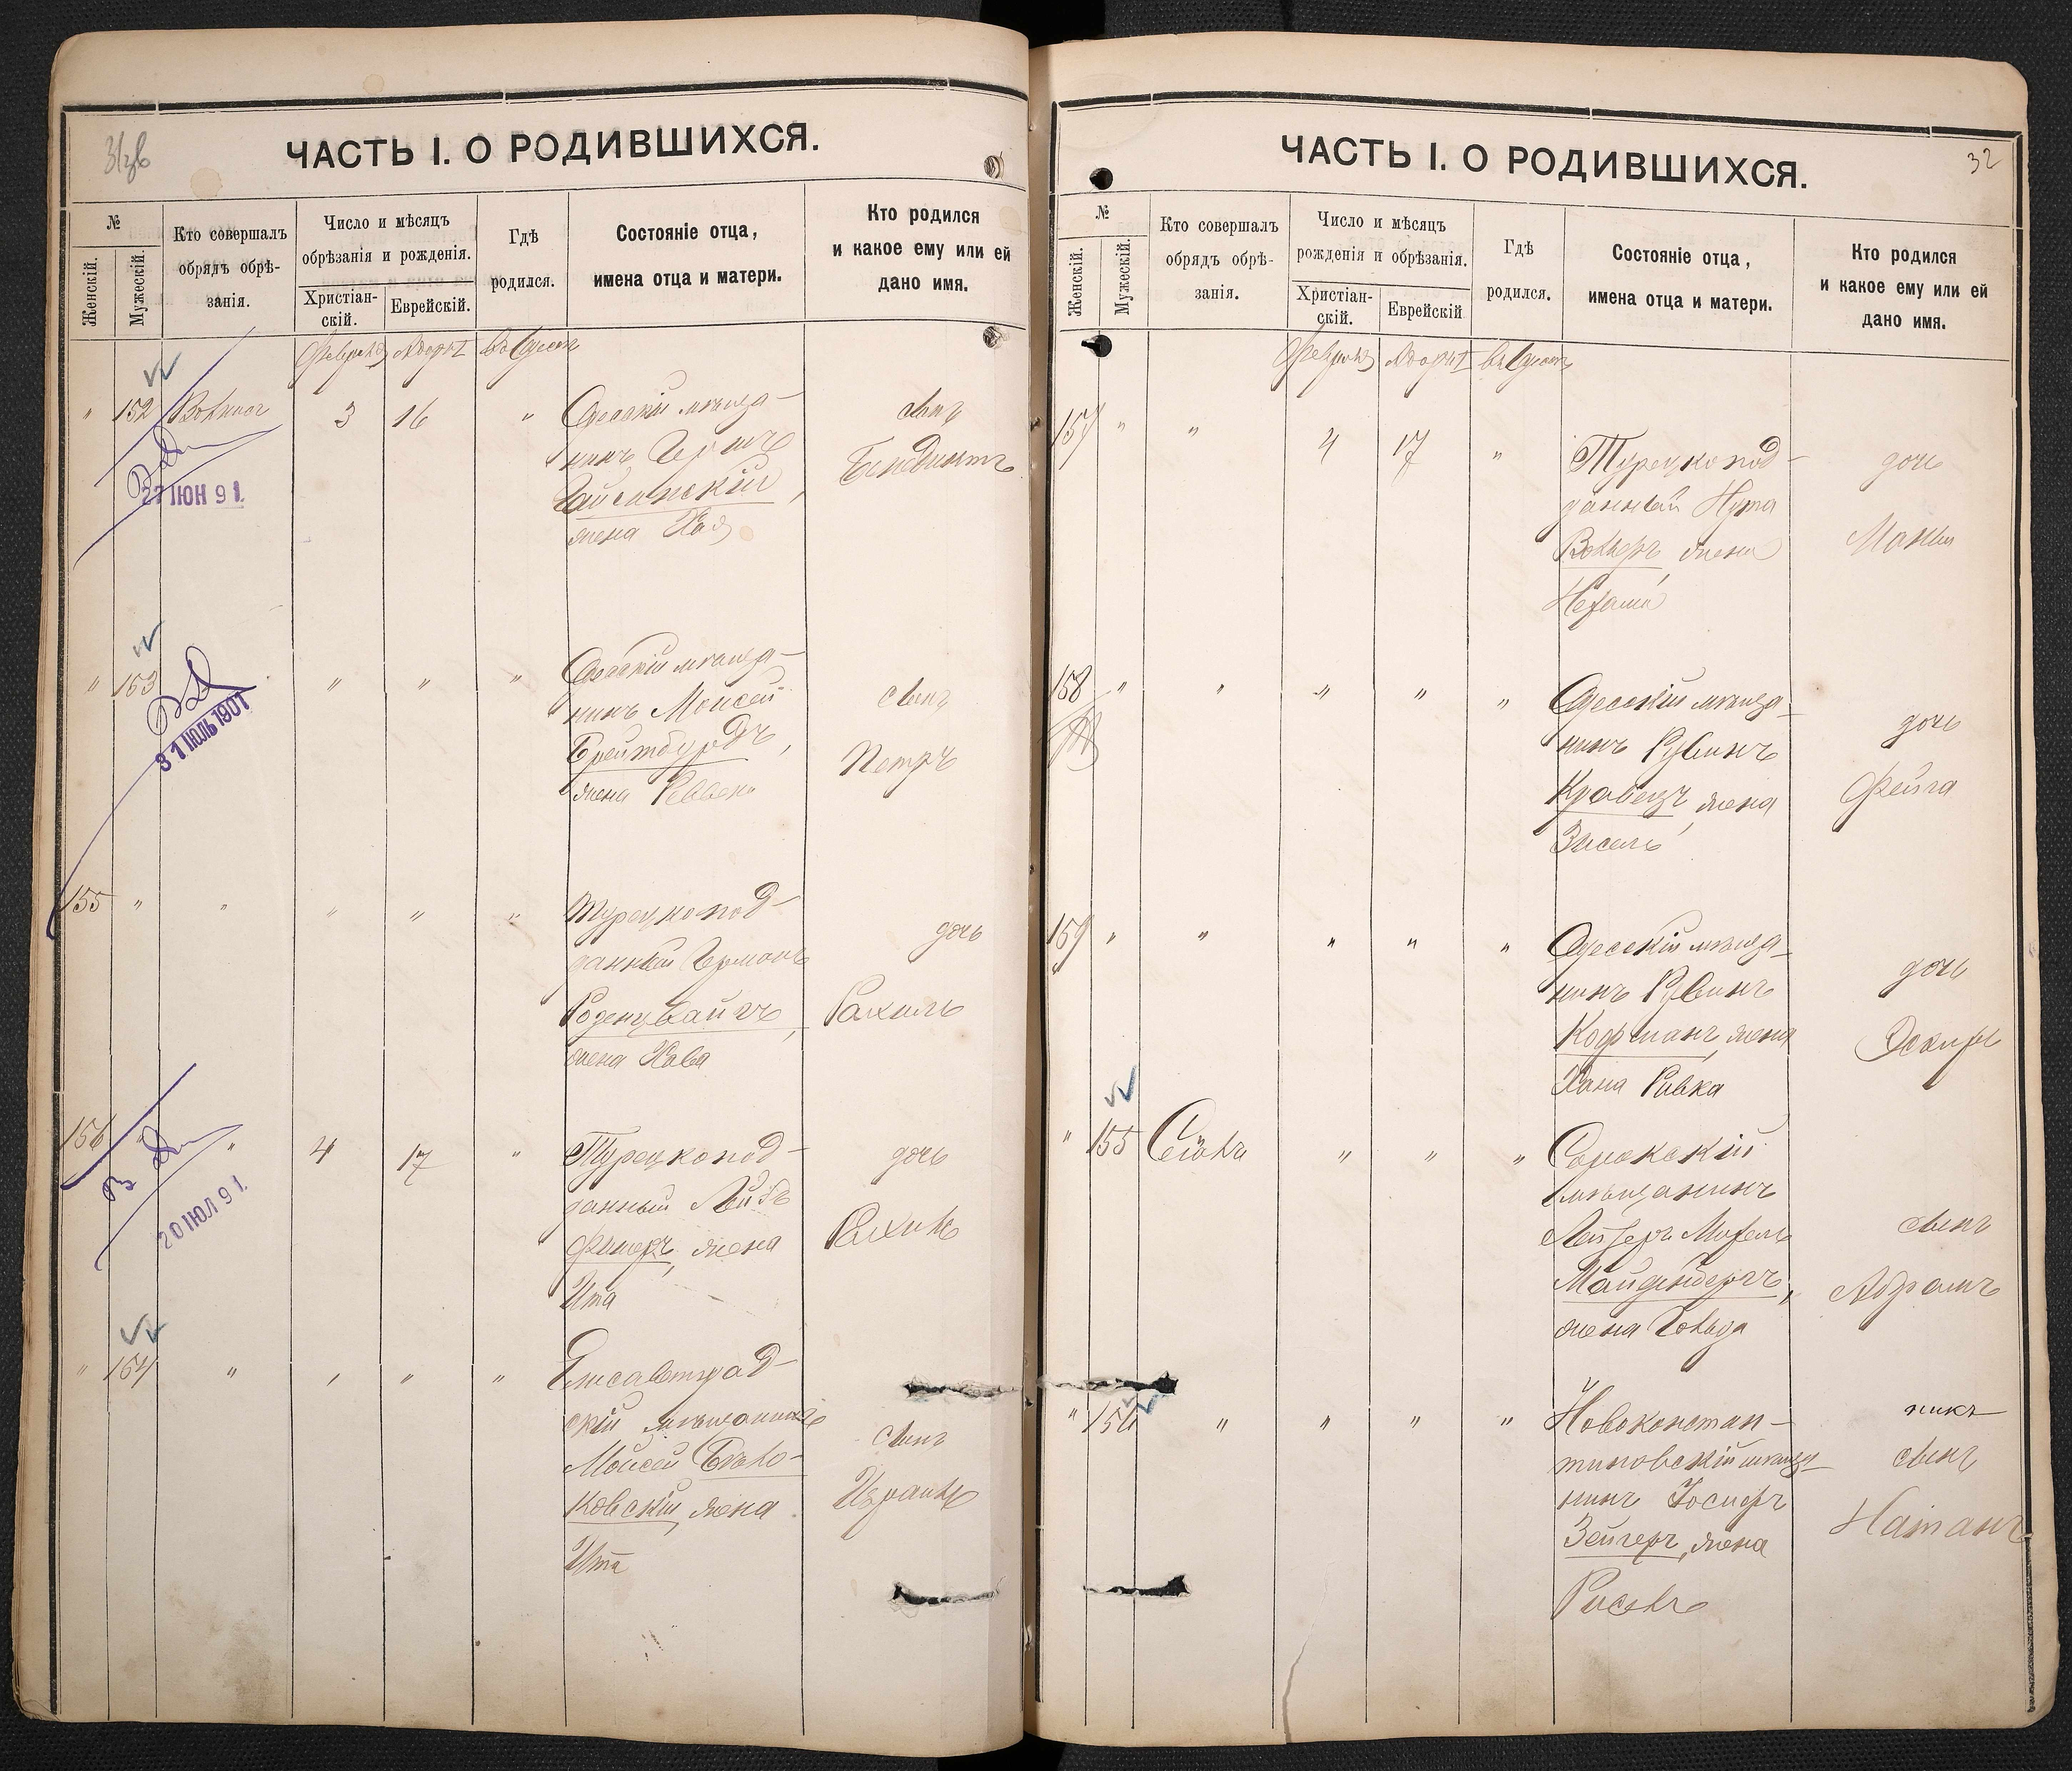 31 об
ЧАСТЬ I. О РОДИВШИХСЯ.
№
Женскій.
Мужескій.
Кто совершалъ
обрядъ обрѣ-
занія.
Число и мѣсяцъ
обрѣзанія и рожденія.
Христіан-
скій.
Еврейскій.
Гдѣ
родился.
Состояніе отца,
имена отца и матери.
Кто родился
и какое ему или ей
дано имя.
Февраль Адаръ I въ Одессѣ
" 152 3 16 " Одесскій мѣща-
нинъ Гершъ
Гайсинскій,
жена Хая
сынъ
Бенедиктъ
27 ІЮН 91.
" 153 " " " Одесскій мѣща-
нинъ Моисей
Брейтбурдъ,
жена
сынъ
Петръ
31 ІЮЛЬ 1901
155 " " " " " Турецкопод-
данный Германъ
Розенцвайгъ,
жена Хава
дочь
Рахиль
156 " 4 17 " Турецкопод-
данный Лейбъ
Фишеръ, жена
Ита
дочь
Рахиль
20 ІЮЛ 91.
" 154 " " " " Елисаветград-
скій мѣщанинъ
Моисей Бѣло-
ковскій, жена
Ита
сынъ
Израиль
32
ЧАСТЬ I. О РОДИВШИХСЯ.
№
Женскій.
Мужескій.
Кто совершалъ
обрядъ обрѣ-
занія.
Число и мѣсяцъ
рожденія и обрѣзанія.
Христіан-
скій.
Еврейскій
Гдѣ
родился.
Состояніе отца,
имена отца и матери.
Кто родился
и какое ему или ей
дано имя.
Февраль Адаръ I въ Одессѣ
157 " " 4 17 " Турецкопод-
данный Нута
жена
Нехама
дочь
Маня
158 " " " " " Одесскій мѣща-
нинъ Рувинъ
Кравецъ, жена
Зисель
дочь
Фейга
159 " " " " " Одесскій мѣща-
нинъ Рувинъ
Кофманъ, жена
Хана Ривка
дочь
Эсфирь
" 155 " " " Сорокскій
мѣщанинъ
Лейзеръ
Майденбергъ,
жена Гольда
сынъ
Абрамъ
" 156 " " " " Новоконстан-
тиновскій мѣща-
нинъ Іосифъ
Зейгеръ, жена
Рисель
сынъ
Натанъ